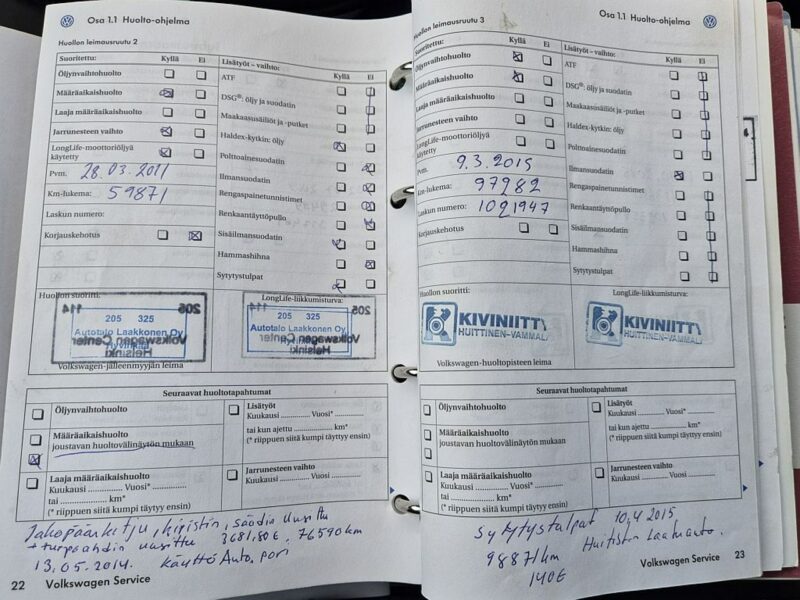 Osa 1.1 Huolto-ohjelma
Huollon leimausruutu 2
Suoritettu: Kyllä Ei
Öljynvaihtohuolto
Määräaikaishuolto
Laaja määräaikaishuolto
Jarrunesteen vaihto
LongLife-moottoriöljyä
käytetty
Pvm. 28.03.2011
Km-lukema: 59871
Laskun numero:
Korjauskehotus
Lisätyöt – vaihto: Kyllä Ei
ATF
DSG®: öljy ja suodatin
Maakaasusäiliöt ja -putket
Haldex-kytkin: öljy
Polttoainesuodatin
Ilmansuodatin
Rengaspainetunnistimet
Renkaantäytöpullo
Sisäilmansuodatin
Hammashihna
Sytytystulpat
Huollon suoritti:
205 325
Autotalo Laakkonen Oy
Hyvinkää
205 114
Volkswagen Center
Helsinki
Volkswagen-jälleenmyyjän leima
LongLife-liikkumisturva:
205 325
Autotalo Laakkonen Oy
114
Volkswagen Center
Helsinki
Seuraavat huoltotapahtumat
Öljynvaihtohuolto
Määräaikaishuolto
joustavan huoltovälinäytön mukaan
Laaja määräaikaishuolto
Kuukausi .............. Vuosi* ..............
tai .............. km*
(* riippuen siitä kumpi täyttyy ensin)
Lisätyöt
Kuukausi .............. Vuosi* ..............
tai kun ajettu .............. km*
(* riippuen siitä kumpi täyttyy ensin)
Jarrunesteen vaihto
Kuukausi .............. Vuosi ..............
Jakopään ketju, kiristin, säädin uusittu
+ turpaahdin uusittu 3681,80€, 76590km
13.05.2014. Käyttö Auto. pori
22 Volkswagen Service
Osa 1.1 Huolto-ohjelma
Huollon leimausruutu 3
Suoritettu: Kyllä Ei
Öljynvaihtohuolto
Määräaikaishuolto
Laaja määräaikaishuolto
Jarrunesteen vaihto
LongLife-moottoriöljyä
käytetty
Pvm. 9.3.2015
Km-lukema: 97982
Laskun numero: 1091947
Korjauskehotus
Lisätyöt – vaihto: Kyllä Ei
ATF
DSG®: öljy ja suodatin
Maakaasusäiliöt ja -putket
Haldex-kytkin: öljy
Polttoainesuodatin
Ilmansuodatin
Rengaspainetunnistimet
Renkaantäytöpullo
Sisäilmansuodatin
Hammashihna
Sytytystulpat
Huollon suoritti:
KIVINIITTY
HUITTINEN-VAMMALA
Volkswagen-huoltopisteen leima
LongLife-liikkumisturva:
KIVINIITTY
HUITTINEN-VAMMALA
Seuraavat huoltotapahtumat
Öljynvaihtohuolto
Määräaikaishuolto
joustavan huoltovälinäytön mukaan
Laaja määräaikaishuolto
Kuukausi .............. Vuosi* ..............
tai .............. km*
(* riippuen siitä kumpi täyttyy ensin)
Lisätyöt
Kuukausi .............. Vuosi* ..............
tai kun ajettu .............. km*
(* riippuen siitä kumpi täyttyy ensin)
Jarrunesteen vaihto
Kuukausi .............. Vuosi ..............
Sytytystulpat 10.4 2015
98871km Huittisten Laatuauto.
140€
Volkswagen Service 23